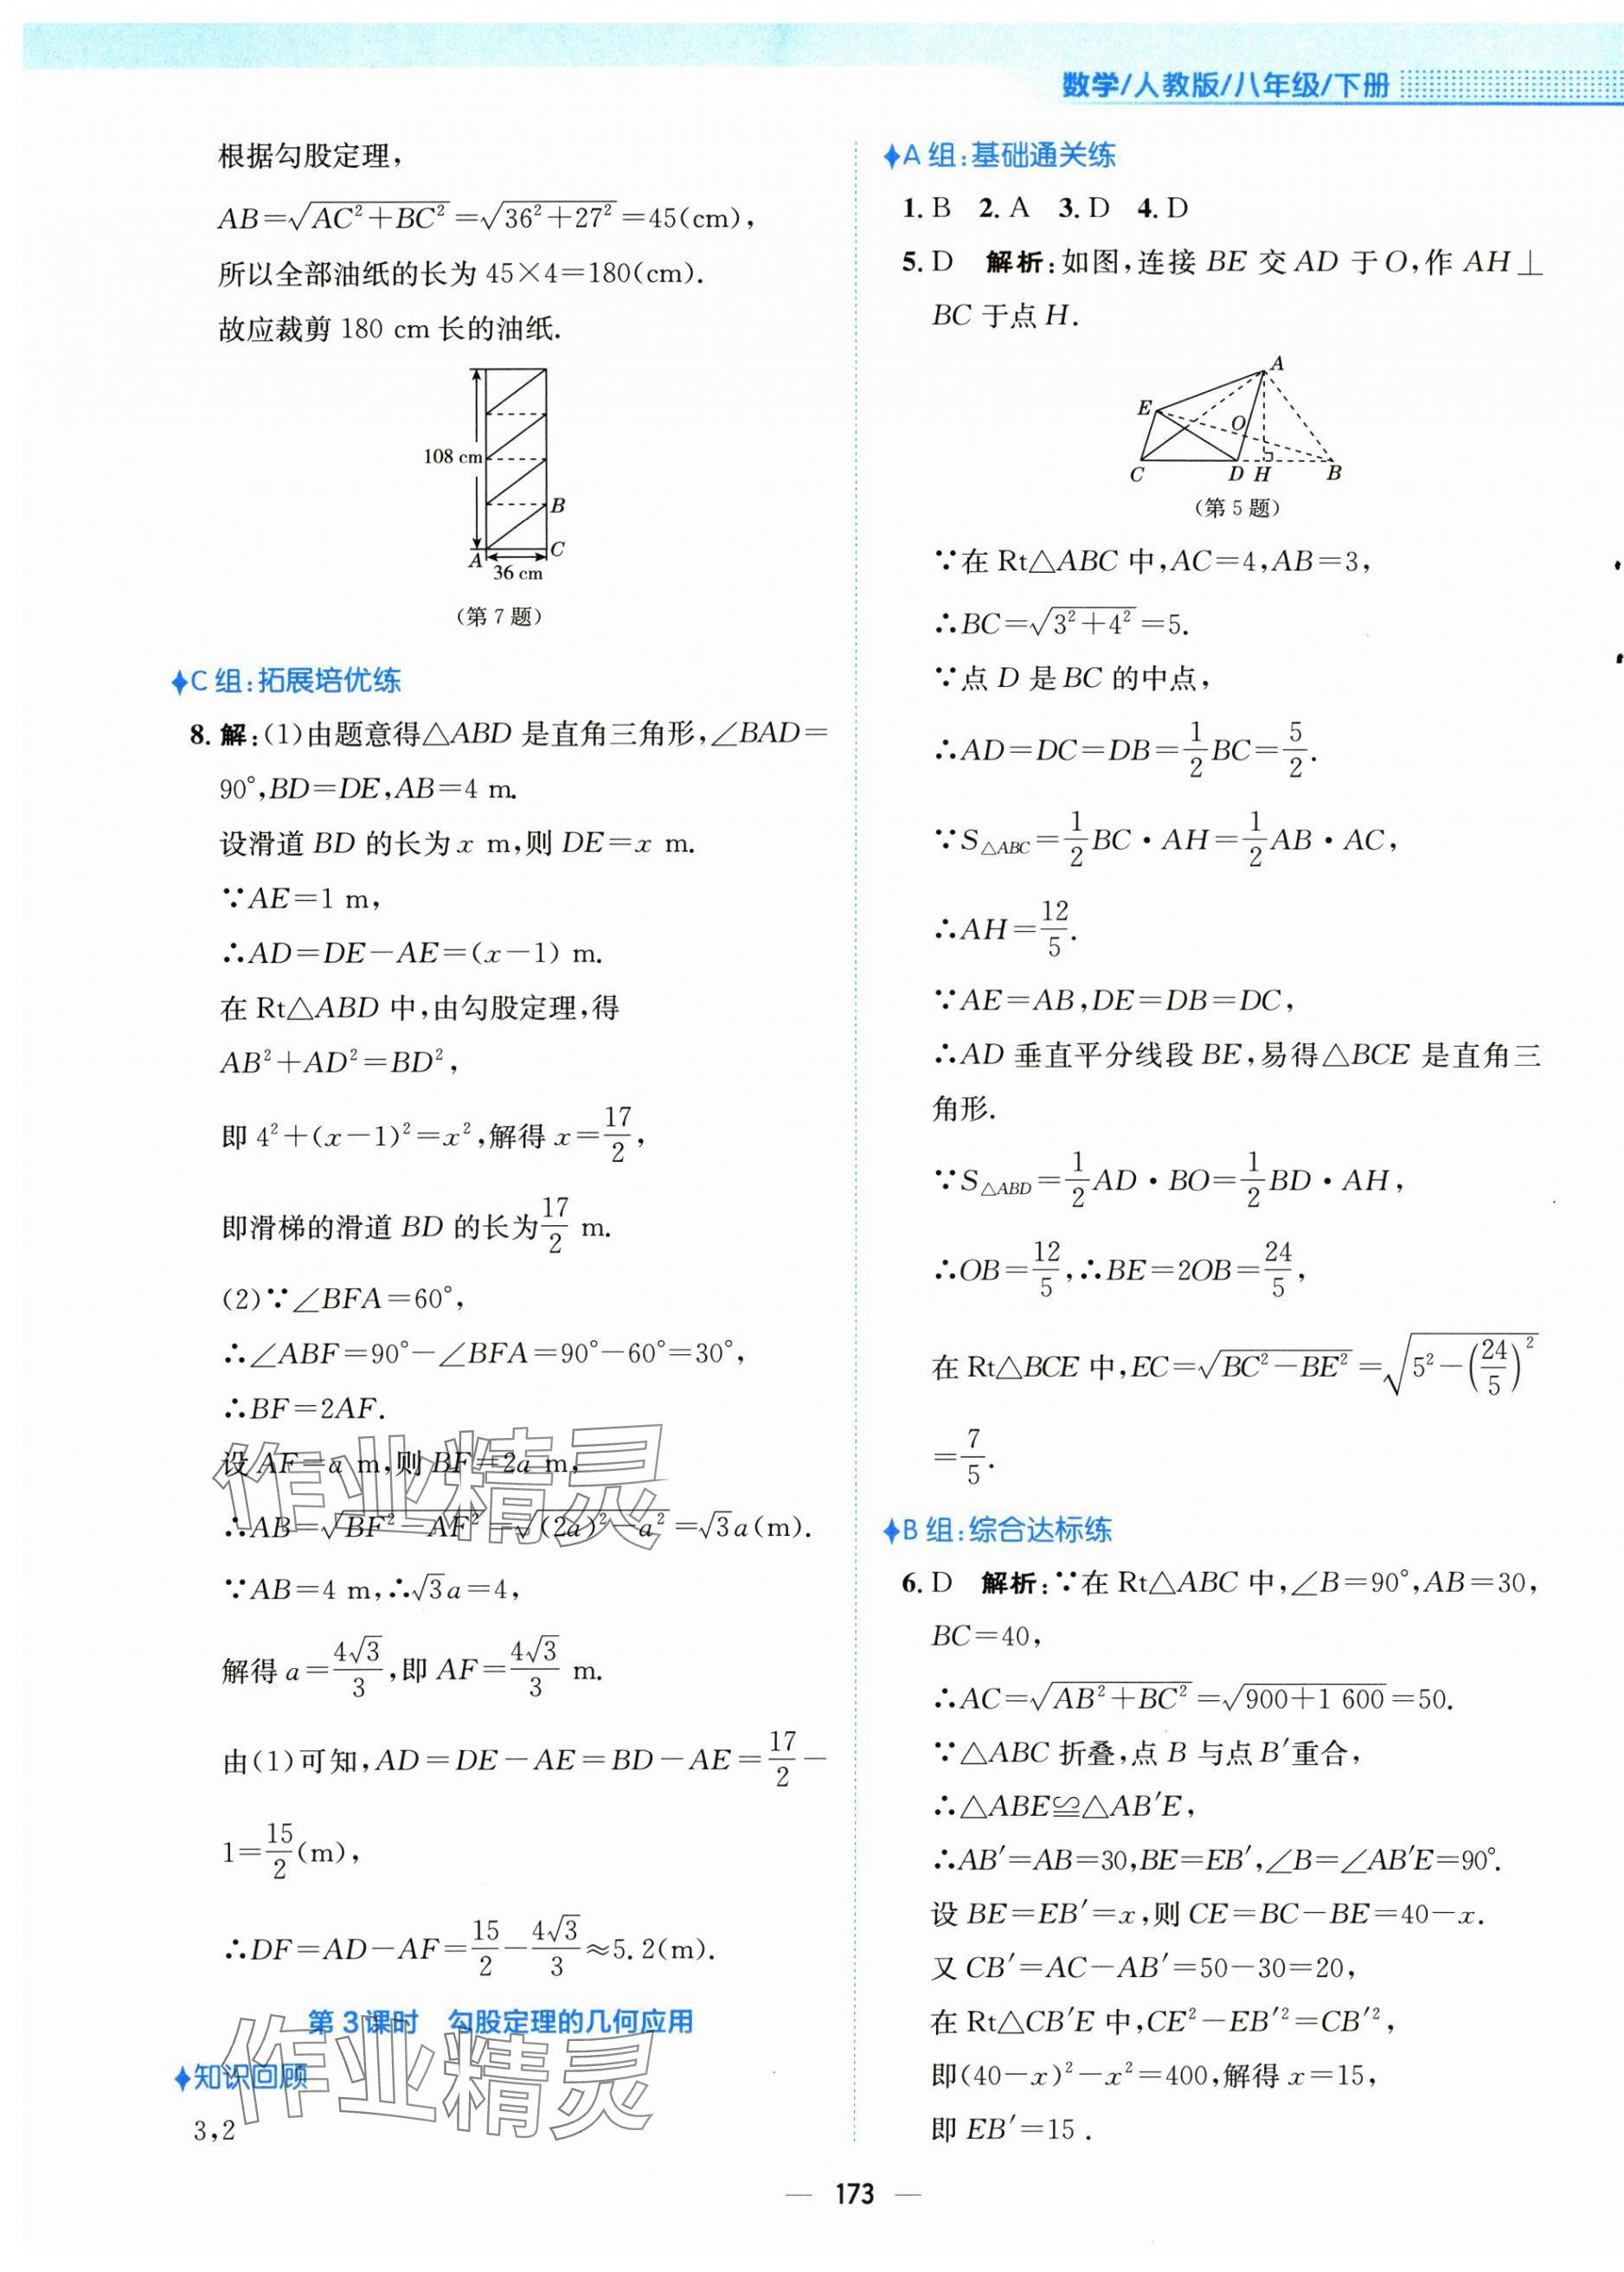 数学/人教版/八年级/下册
根据勾股定理,
AB=√(AC²+BC²)=√(36²+27²)=45(cm),
所以全部油纸的长为 45×4=180(cm).
故应裁剪 180 cm 长的油纸.
108 cm
B
A
C
36 cm
(第 7 题)
C 组:拓展培优练
8. 解:(1)由题意得△ABD 是直角三角形,∠BAD=
90°,BD=DE,AB=4 m.
设滑道 BD 的长为 x m,则 DE=x m.
∵AE=1 m,
∴AD=DE-AE=(x-1) m.
在 Rt△ABD 中,由勾股定理,得
AB²+AD²=BD²,
即 4²+(x-1)²=x²,解得 x=17/2,
即滑梯的滑道 BD 的长为17/2 m.
(2)∵∠BFA=60°,
∴∠ABF=90°-∠BFA=90°-60°=30°,
∴BF=2AF.
设 AF=a m,则 BF=2a m,
∴AB=√(BF²-AF²)=√((2a)²-a²)=√3a(m).
∵AB=4 m,∴√3a=4,
解得 a=4√3/3,即 AF=4√3/3 m.
由(1)可知,AD=DE-AE=BD-AE=17/2-
1=15/2(m),
∴DF=AD-AF=15/2-4√3/3≈5.2(m).
第 3 课时 勾股定理的几何应用
知识回顾
3,2
作业精灵
作业精灵
A 组:基础通关练
1. B 2. A 3. D 4. D
5. D 解析:如图,连接 BE 交 AD 于 O,作 AH⊥
BC 于点 H.
A
E
O
C
D
H
B
(第 5 题)
∵在 Rt△ABC 中,AC=4,AB=3,
∴BC=√(3²+4²)=5.
∵点 D 是 BC 的中点,
∴AD=DC=DB=1/2BC=5/2.
∵S△ABC=1/2BC·AH=1/2AB·AC,
∴AH=12/5.
∵AE=AB,DE=DB=DC,
∴AD 垂直平分线段 BE,易得△BCE 是直角三
角形.
∵S△ABD=1/2AD·BO=1/2BD·AH,
∴OB=12/5,∴BE=2OB=24/5,
在 Rt△BCE 中,EC=√(BC²-BE²)=√(5²-(24/5)²)
=7/5.
B 组:综合达标练
6. D 解析:∵在 Rt△ABC 中,∠B=90°,AB=30,
BC=40,
∴AC=√(AB²+BC²)=√(900+1 600)=50.
∵△ABC 折叠,点 B 与点 B′重合,
∴△ABE≌△AB′E,
∴AB′=AB=30,BE=EB′,∠B=∠AB′E=90°.
设 BE=EB′=x,则 CE=BC-BE=40-x.
又 CB′=AC-AB′=50-30=20,
在 Rt△CB′E 中,CE²-EB′²=CB′²,
即(40-x)²-x²=400,解得 x=15,
即 EB′=15.
— 173 —